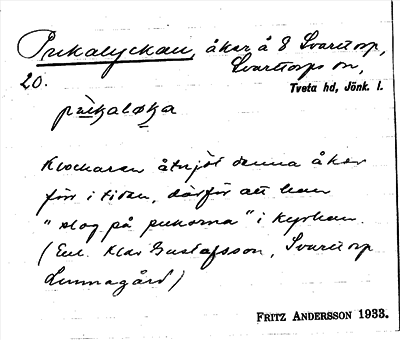 Pukalyckan, åker å 8 Svarttorp,
20. Svarttorps sn,
Tveta hd, Jönk. l.
pùkaløka
Klockaren åtnjöt denna åker
förr i tiden, därför att han
"slog på pukorna" i kyrkan.
(Enl. Klas Gustafsson, Svarttorp
Lunnagård)
FRITZ ANDERSSON 1933.